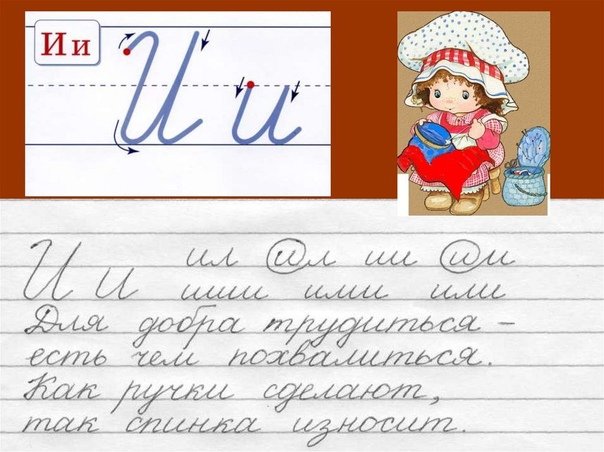 И и
И и
ил ил ии ии
И И иши ими или
Для добра трудиться –
есть чем похвалиться.
Как ручки сделают,
так спинка износит.